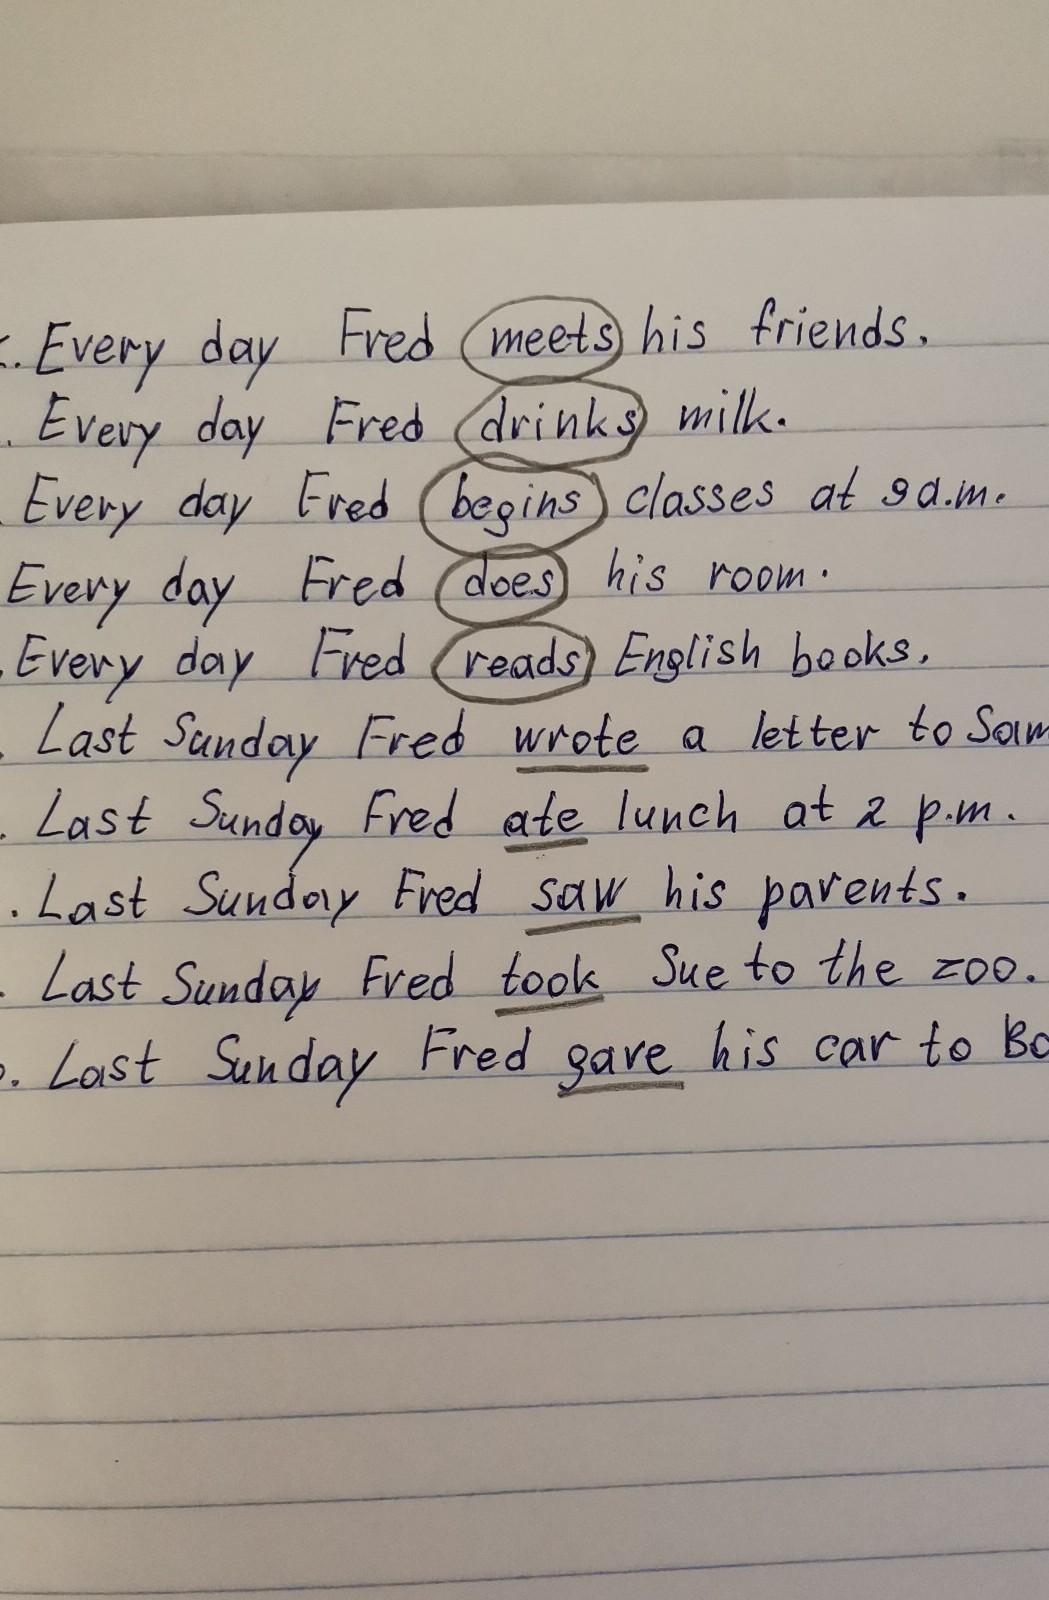 . Every day Fred meets his friends.
. Every day Fred drinks milk.
. Every day Fred begins classes at 9 a.m.
Every day Fred does his room.
. Every day Fred reads English books.
. Last Sunday Fred wrote a letter to Sam
. Last Sunday Fred ate lunch at 2 p.m.
. Last Sunday Fred saw his parents.
. Last Sunday Fred took Sue to the zoo.
. Last Sunday Fred gave his car to